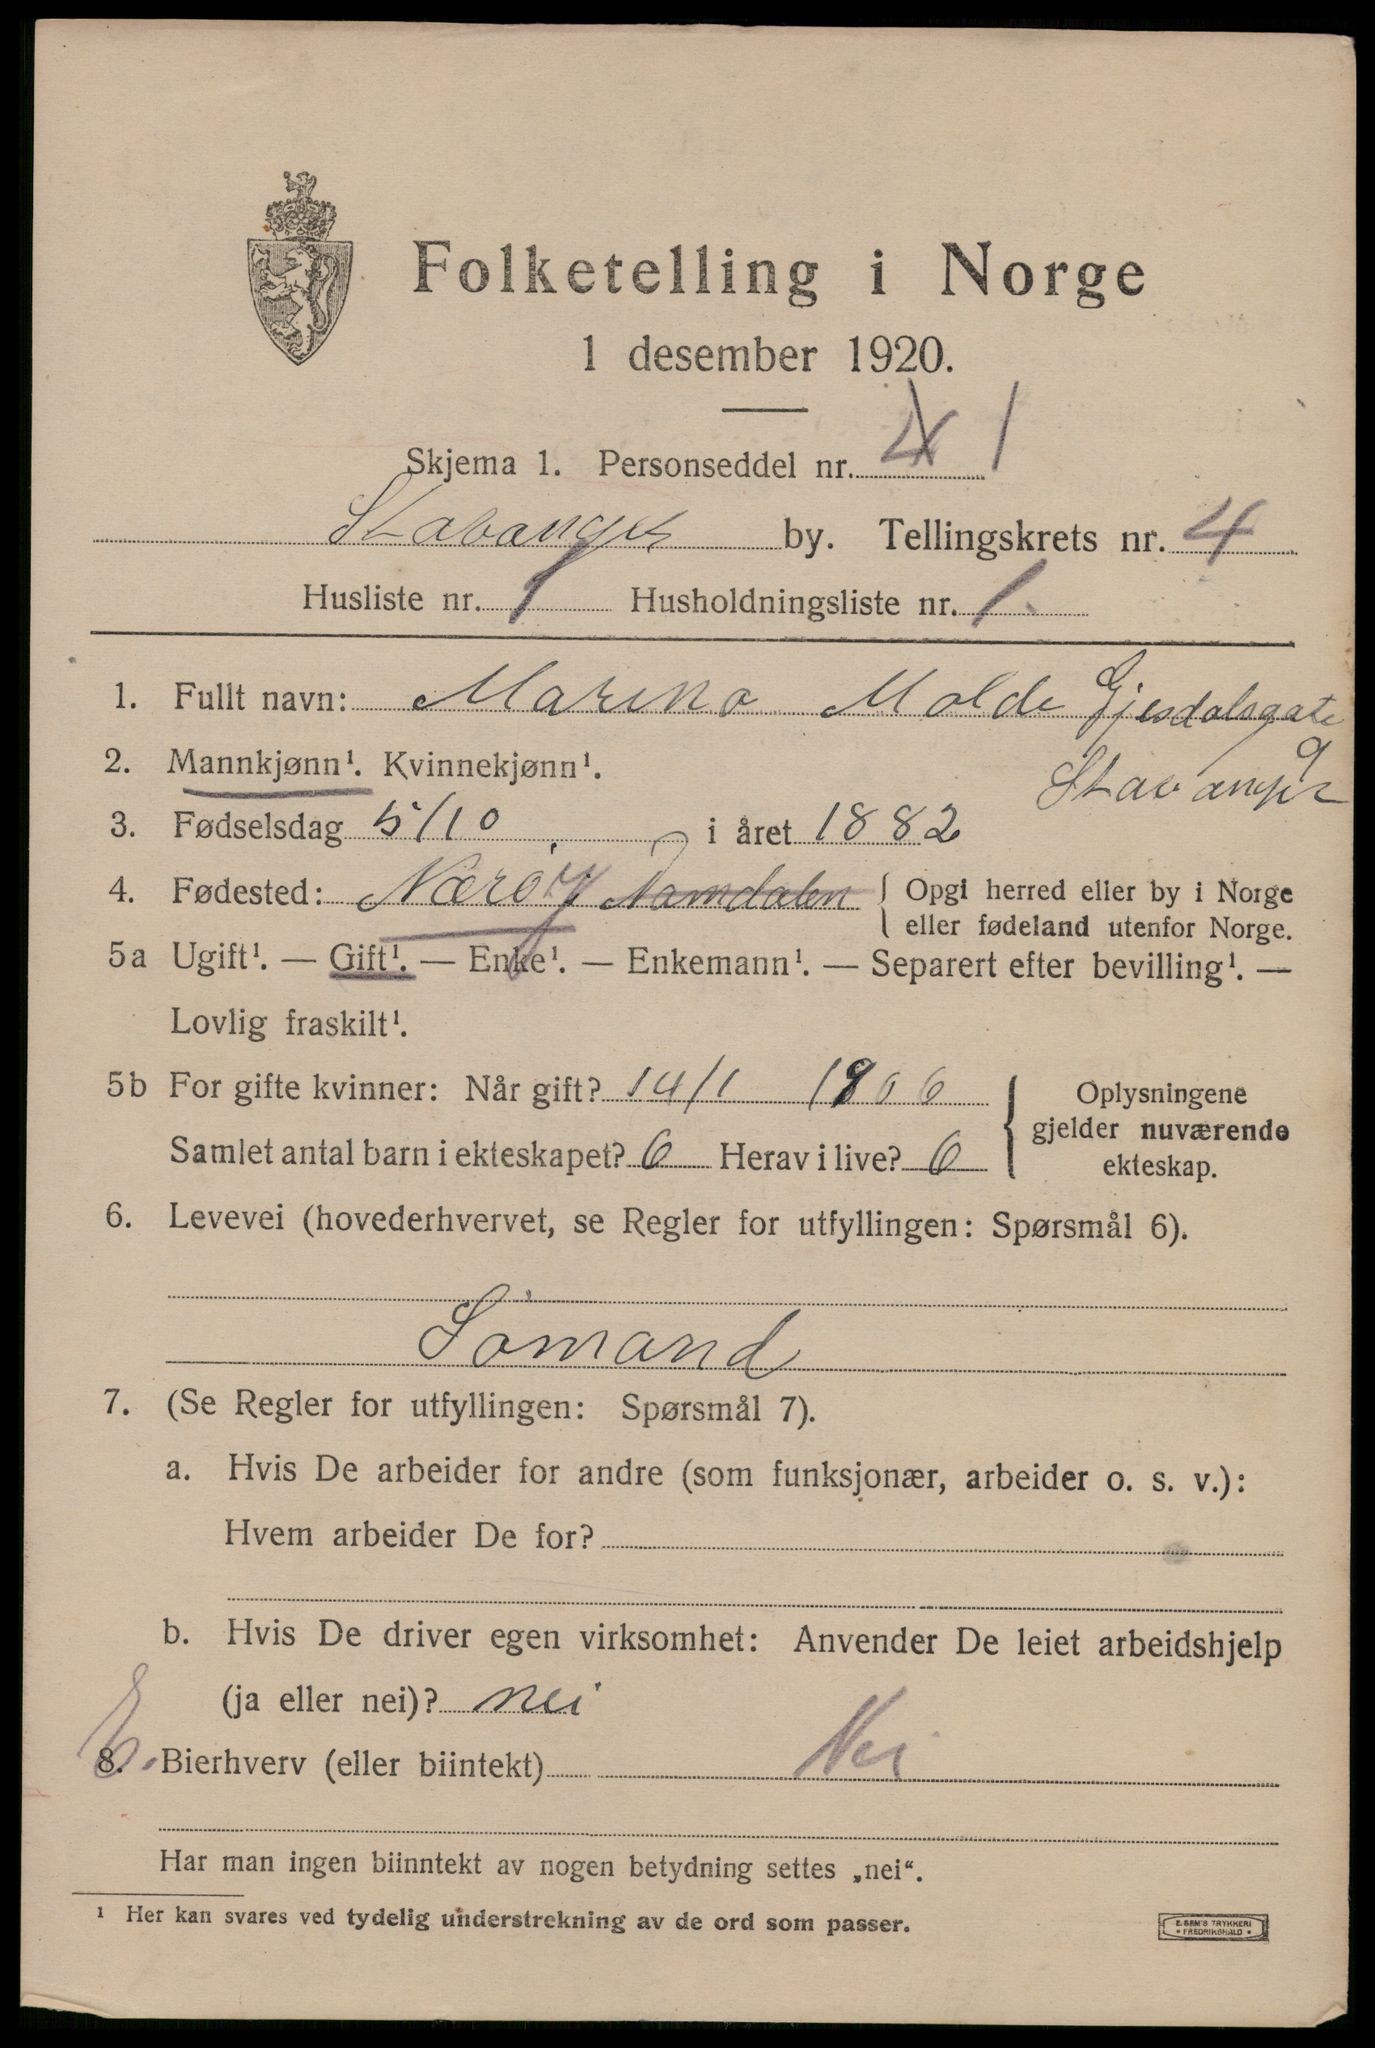 Folketelling i Norge
1 desember 1920.
Skjema 1. Personseddel nr. 4 1
Stavanger by. Tellingskrets nr. 4
Husliste nr. 1 Husholdningsliste nr. 1.
1. Fullt navn: Marino Molde Gjesdalsgate 9
Stavanger
2. Mannkjønn¹. Kvinnekjønn¹.
3. Fødselsdag 5/10 i året 1882
4. Fødested: Nærøy Namdalen { Opgi herred eller by i Norge
eller fødeland utenfor Norge.
5a Ugift¹. — Gift¹. — Enke¹. — Enkemann¹. — Separert efter bevilling¹. —
Lovlig fraskilt¹.
5b For gifte kvinner: Når gift? 14/1 1906
Samlet antal barn i ekteskapet? 6 Herav i live? 6
Oplysningene
gjelder nuværende
ekteskap.
6. Levevei (hovederhvervet, se Regler for utfyllingen: Spørsmål 6).
Sømand
7. (Se Regler for utfyllingen: Spørsmål 7).
a. Hvis De arbeider for andre (som funksjonær, arbeider o. s. v.):
Hvem arbeider De for?
b. Hvis De driver egen virksomhet: Anvender De leiet arbeidshjelp
(ja eller nei)? nei
8. Bierhverv (eller biintekt) Nei
Har man ingen biinntekt av nogen betydning settes „nei“.
¹ Her kan svares ved tydelig understrekning av de ord som passer.
E. SEM'S TRYKKERI
• FREDRIKSHALD •